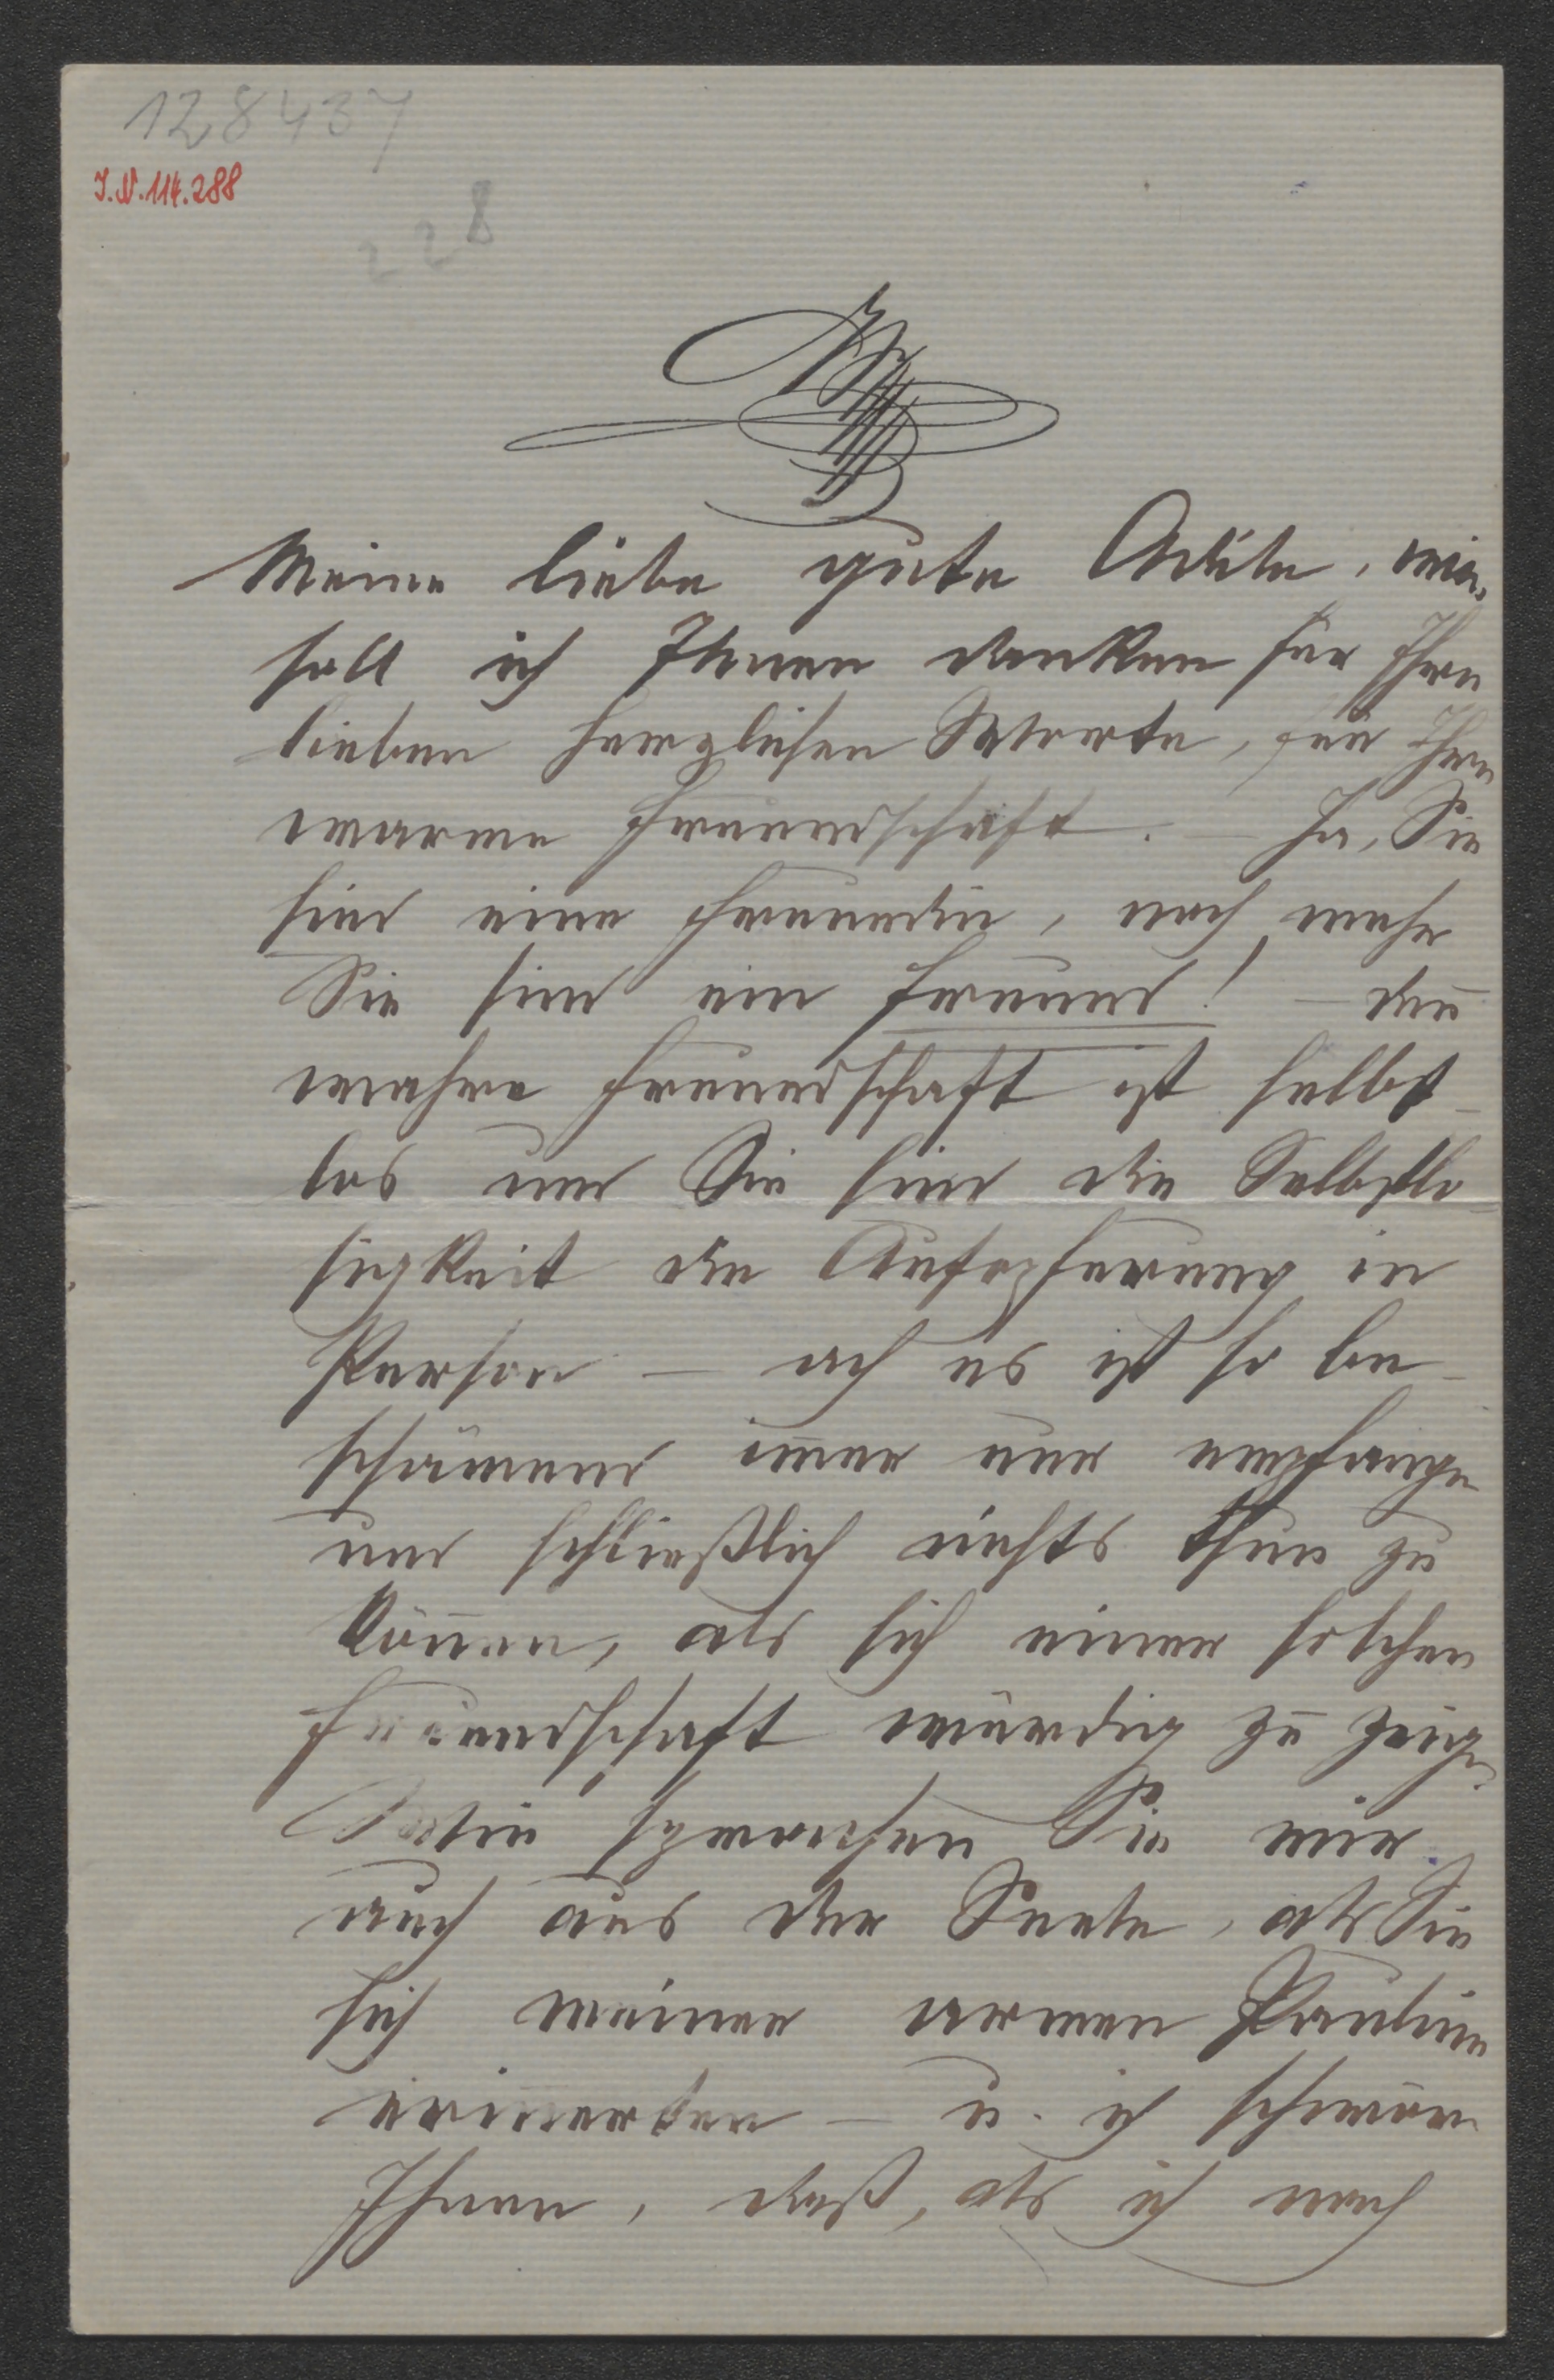 128437
I.N. 114.288
228
Meine liebe gute Adele, wie
soll ich Ihnen danken für Ihre
lieben herzlichen Worte, für Ihre
warme Freundschaft. – Ja, Sie
sind eine Freundin, noch mehr
Sie sind ein Freund! – die
wahre Freundschaft ist selbst-
los und Sie sind die Selbstlo-
sigkeit die Aufopferung in
Person – ach es ist so be-
schämend immer nur empfangen
und schließlich nichts thun zu
können, als sich einer solchen
Freundschaft würdig zu zeigen.
sprachen Sie mir
auch aus der Seele, als Sie
sich meiner armen Pauline
erinnerten – u. ich schwöre
Ihnen, daß, als ich nach